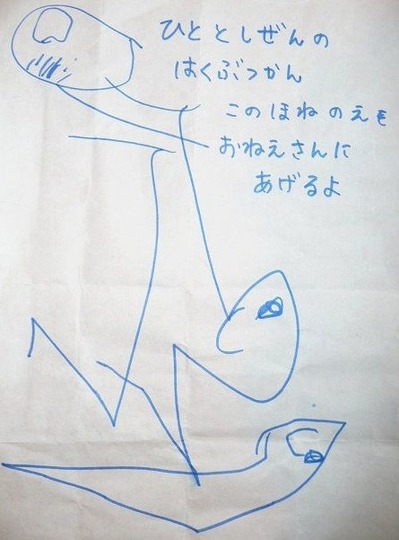 ひととしぜんの
はくぶつかん
このほねのえを
おねえさんに
あげるよ